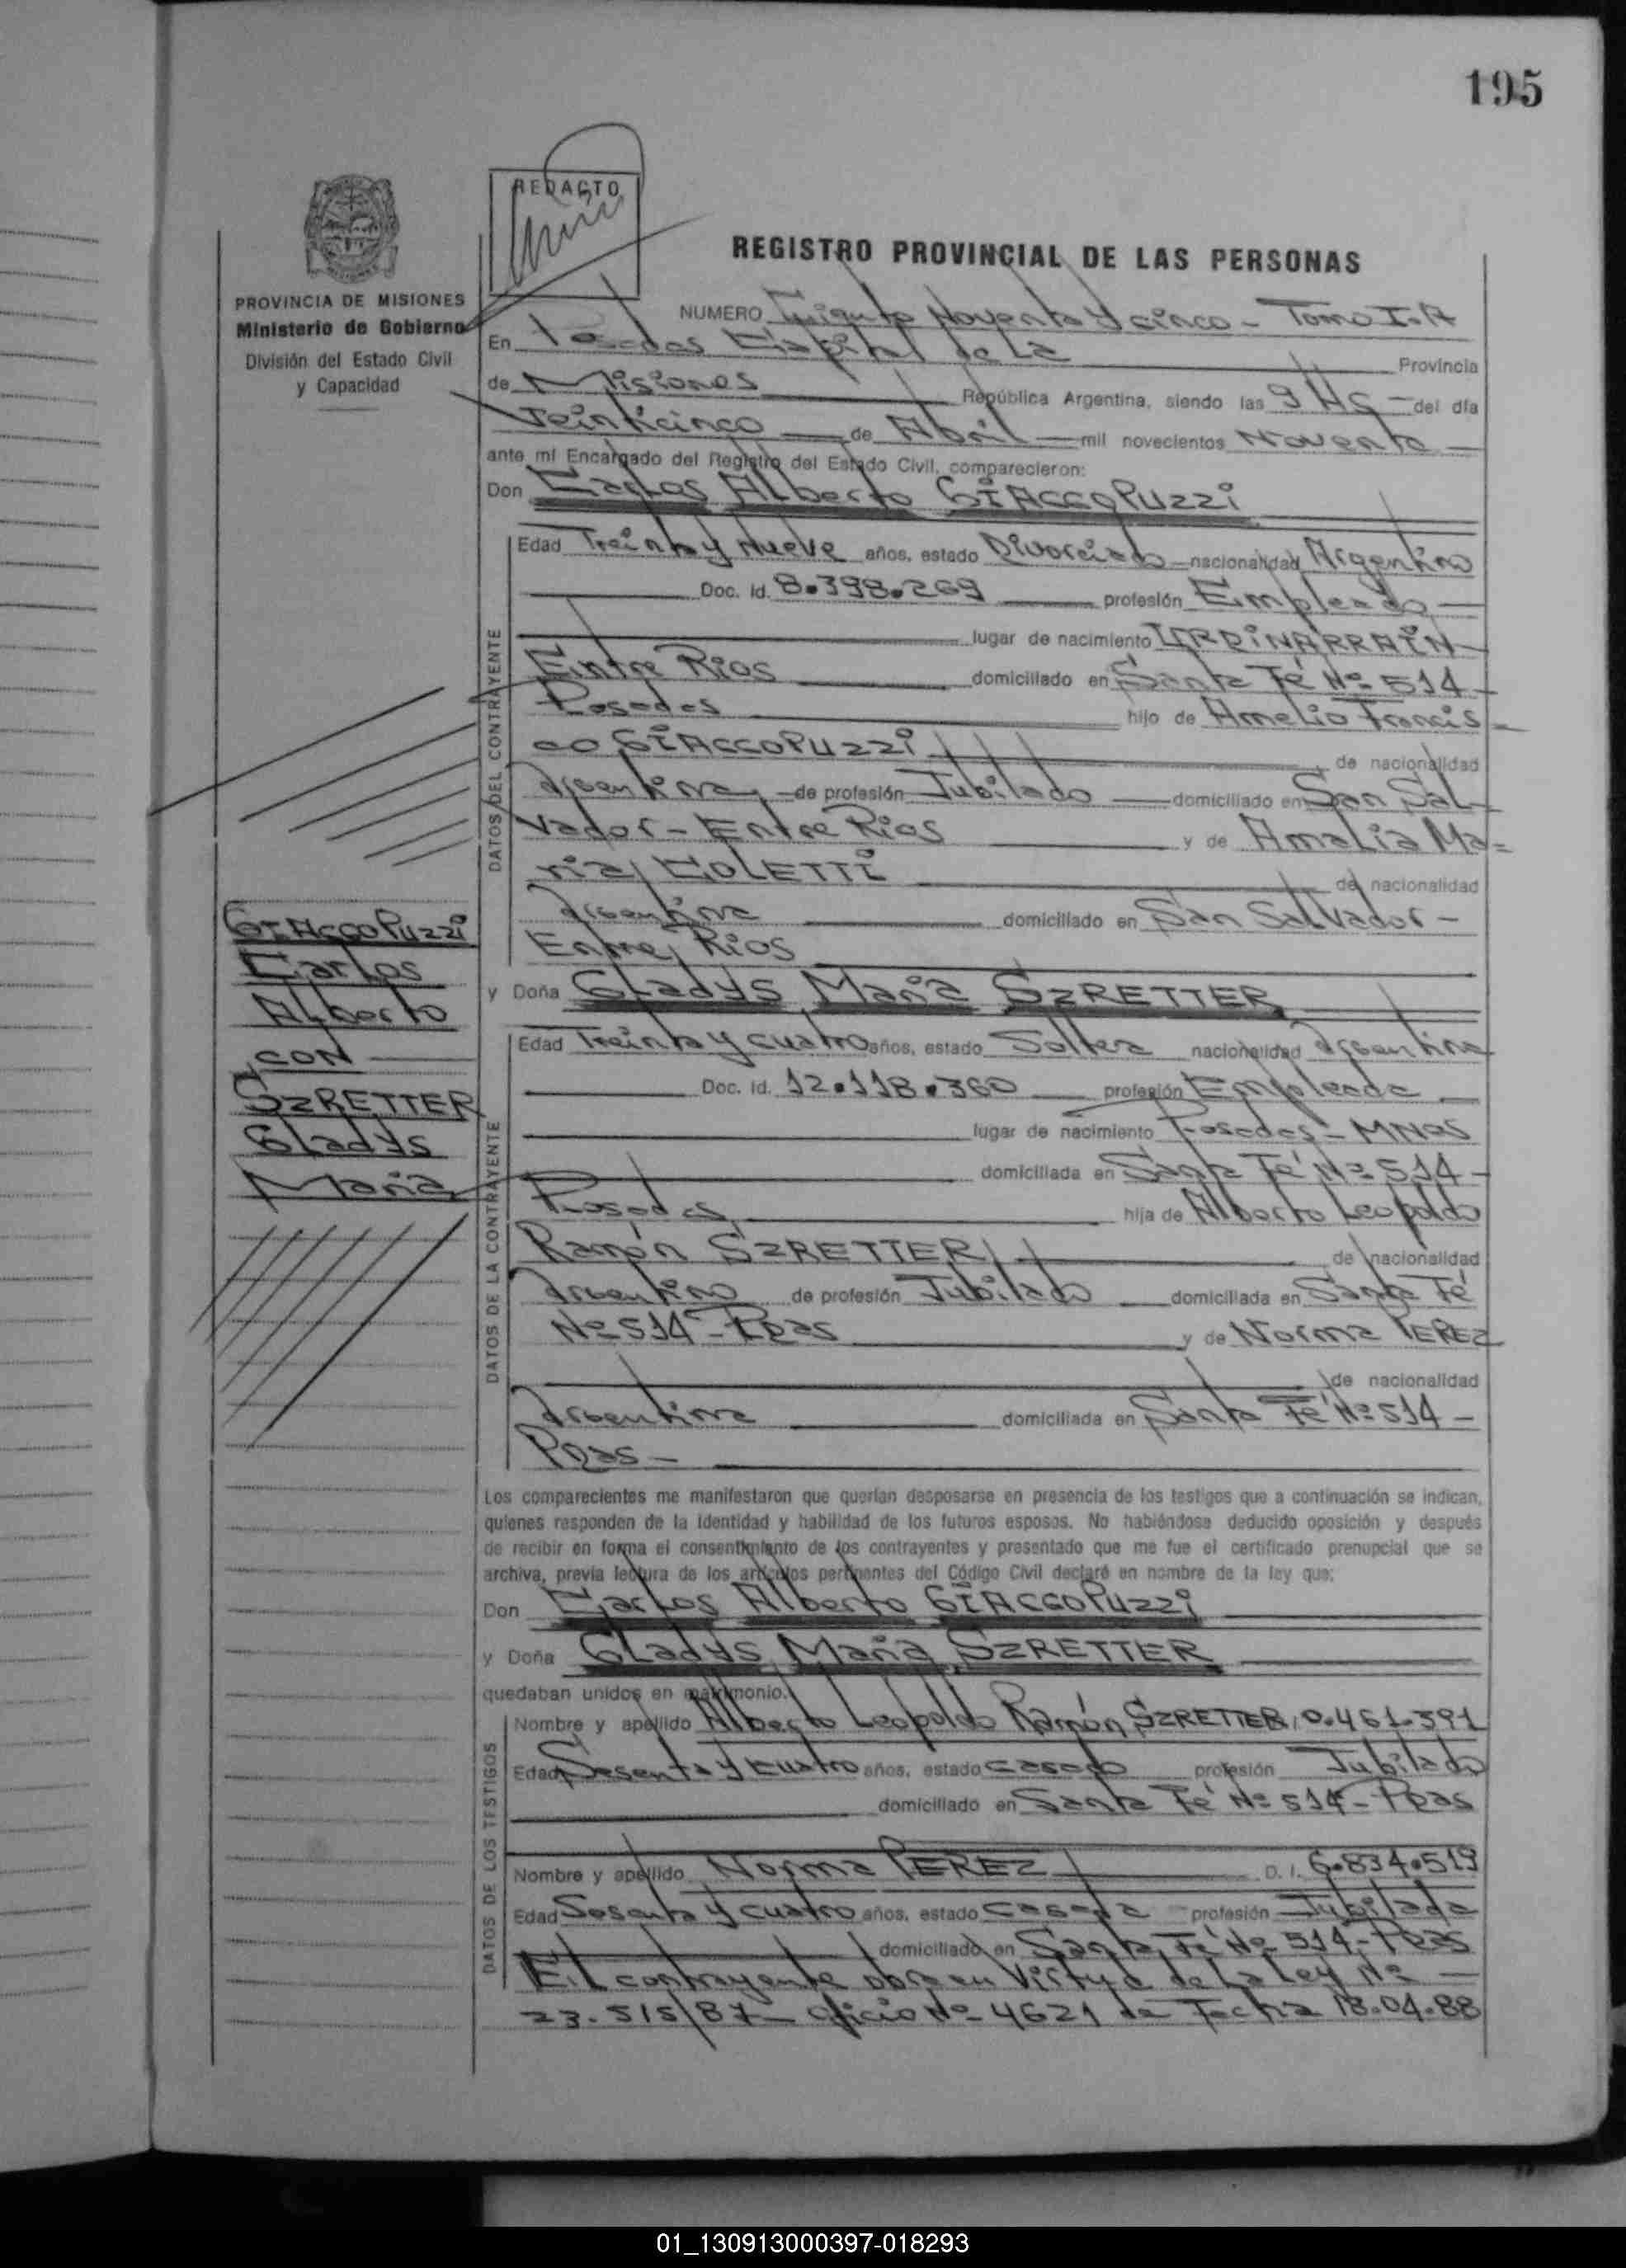 195
REDACTO
REGISTRO PROVINCIAL DE LAS PERSONAS
PROVINCIA DE MISIONES
Ministerio de Gobierno
División del Estado Civil
y Capacidad
NUMERO Ciento Noventa y cinco - Tomo I-A
En Posadas Capital de La Provincia
de Misiones República Argentina, siendo las 9 HS - del día
Veinticinco de Abril mil novecientos Noventa
ante mí Encargado del Registro del Estado Civil, comparecieron:
Don Carlos Alberto GIACCOPUZZI
DATOS DEL CONTRAYENTE
Edad Treinta y Nueve años, estado Divorciado nacionalidad Argentino
Doc. Id. 8.398.269 profesión Empleado
lugar de nacimiento URDINARRAIN
Entre Rios domiciliado en Santa Fé Nº 514
Posadas hijo de Amelio Francis=
co GIACCOPUZZI de nacionalidad
Argentina de profesión Jubilado domiciliado en San Sal-
vador - Entre Rios y de Amalia Ma=
ria COLETTI de nacionalidad
Argentina domiciliado en San Salvador -
Entre Rios
GIACCOPUZZI
Carlos
Alberto
CON
SZRETTER
Gladys
Maria
y Doña Gladys Maria SZRETTER
DATOS DE LA CONTRAYENTE
Edad Treinta y cuatro años, estado Soltera nacionalidad Argentina
Doc. Id. 12.118.360 profesión Empleada
lugar de nacimiento Posadas - MNES
domiciliada en Santa Fé Nº 514 -
Posadas hija de Alberto Leopoldo
Ramón SZRETTER de nacionalidad
Argentino de profesión Jubilado domiciliada en Santa Fé
Nº 514 - Pdas y de Norma PEREZ
de nacionalidad
Argentina domiciliada en Santa Fé Nº 514 -
Pdas -
Los comparecientes me manifestaron que querían desposarse en presencia de los testigos que a continuación se indican,
quienes responden de la identidad y habilidad de los futuros esposos. No habiéndose deducido oposición y después
de recibir en forma el consentimiento de los contrayentes y presentado que me fue el certificado prenupcial que se
archiva, previa lectura de los artículos pertinentes del Código Civil declaré en nombre de la ley que:
Don Carlos Alberto GIACCOPUZZI
y Doña Gladys Maria SZRETTER
quedaban unidos en matrimonio.
DATOS DE LOS TESTIGOS
Nombre y apellido Alberto Leopoldo Ramón SZRETTER, 0.461.391
Edad Sesenta y Cuatro años, estado casado profesión Jubilado
domiciliado en Santa Fé Nº 514 - Pdas
Nombre y apellido Norma PEREZ D. I. 6.834.519
Edad Sesenta y cuatro años, estado casada profesión Jubilada
domiciliado en Santa Fé Nº 514 - Pdas
El contrayente obra en Virtud de La Ley Nº
23.515/87 - Oficio Nº 4621 de Fecha 18.04.88
01_130913000397-018293